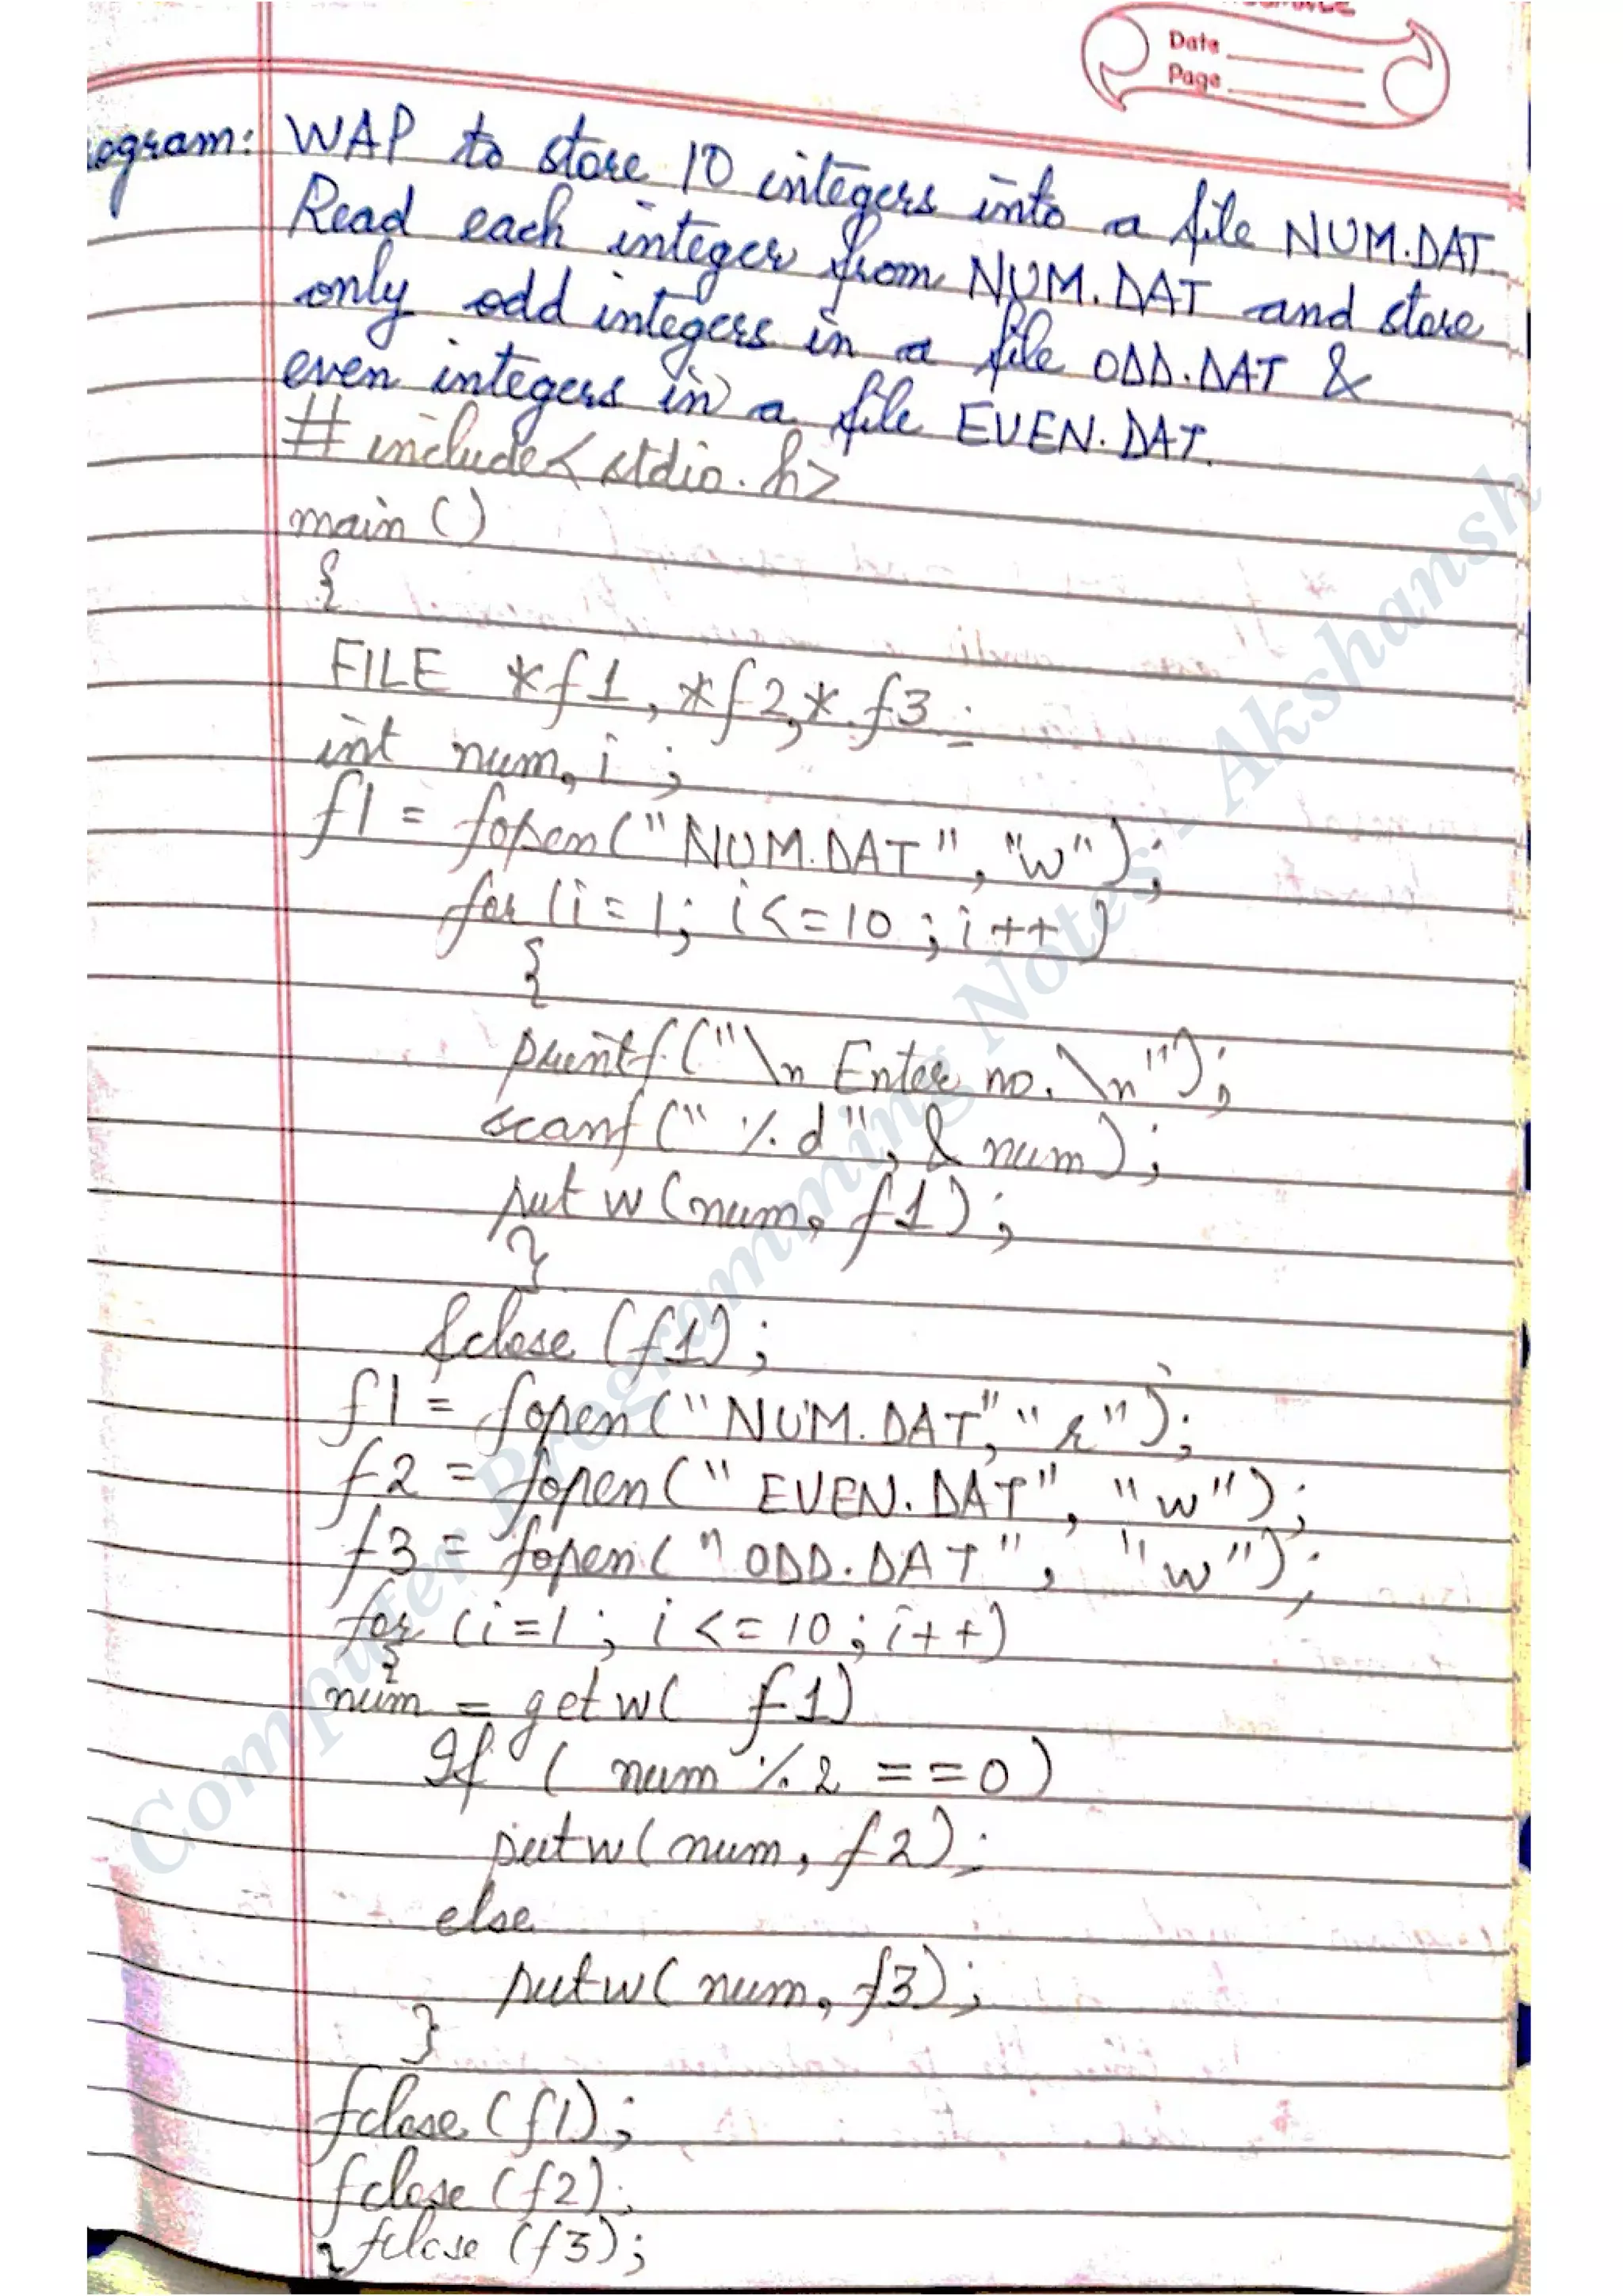 Date
Page
ogram: WAP to store 10 integers into a file NUM.DAT.
Read each integer from NUM.DAT and store
only odd integers in a file ODD.DAT &
even integers in a file EVEN.DAT.
# include< stdio.h>
main ()
{
FILE *f1, *f2,* f3 ;
int num, i ;
f1 = fopen("NUM.DAT", "w");
for (i=1; i<=10 ; i++)
{
printf("\n Enter no. \n");
scanf("%d", & num);
put w (num, f1);
}
fclose (f1);
f1 = fopen("NUM.DAT", "r");
f2 = fopen("EVEN.DAT", "w");
f3 = fopen("ODD.DAT", "w");
for (i=1; i<=10; i++)
{
num = getw( f1)
If ( num %2 ==0)
putw(num, f2);
else
putw( num, f3);
}
fclose (f1);
fclose (f2);
} fclose (f3);
Computer Programming Notes - Akshansh